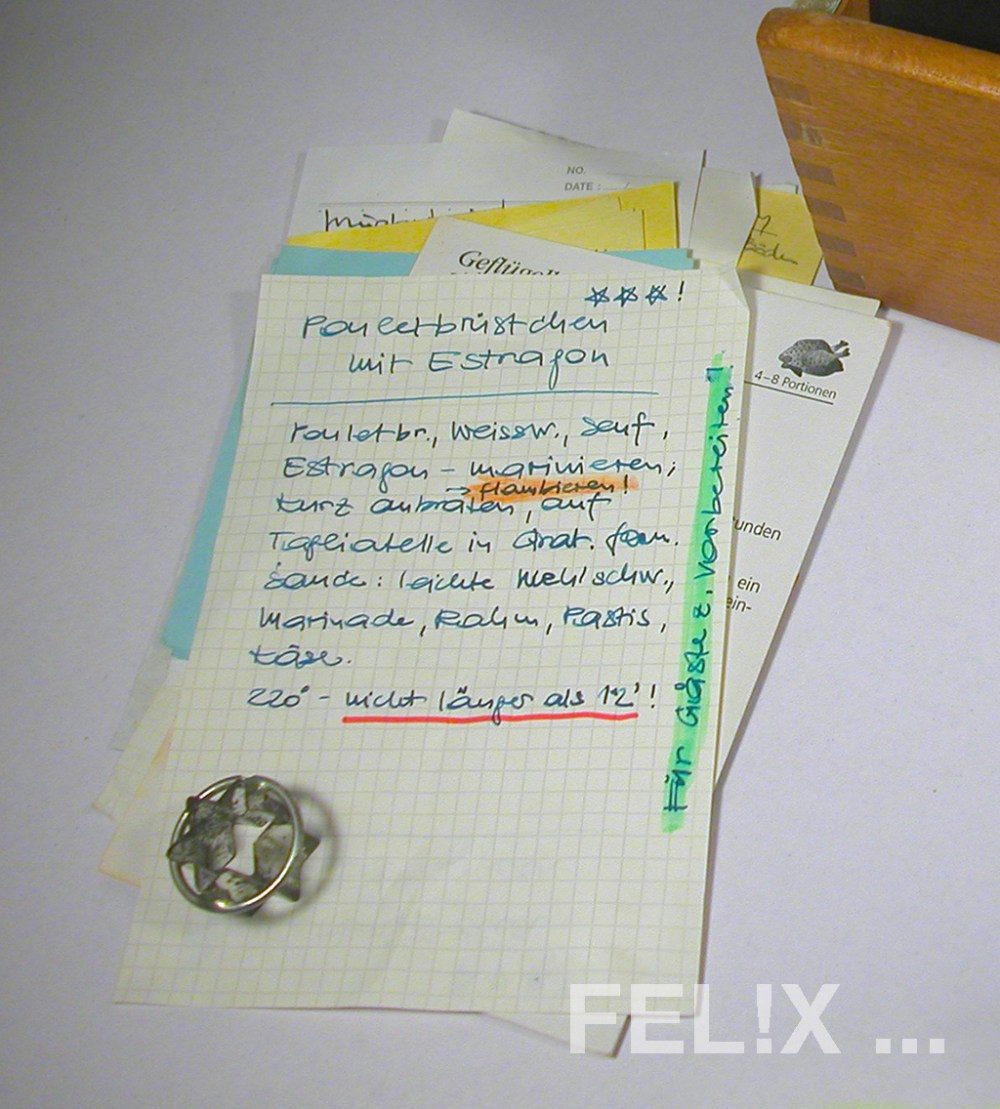 NO.
DATE :
Geflügel
***!
Pouletbrüstchen
mit Estragon
Pouletbr., Weissw., Senf,
Estragon - marinieren;
→ flambieren!
kurz anbraten, auf
Tagliatelle in Grat. form.
Sauce: leichte Mehlschw.,
Marinade, Rahm, Pastis,
Käse.
220° - nicht länger als 12'!
Für Gäste z. Vorbereiten!
4-8 Portionen
unden
ein
ein-
FEL!X ...